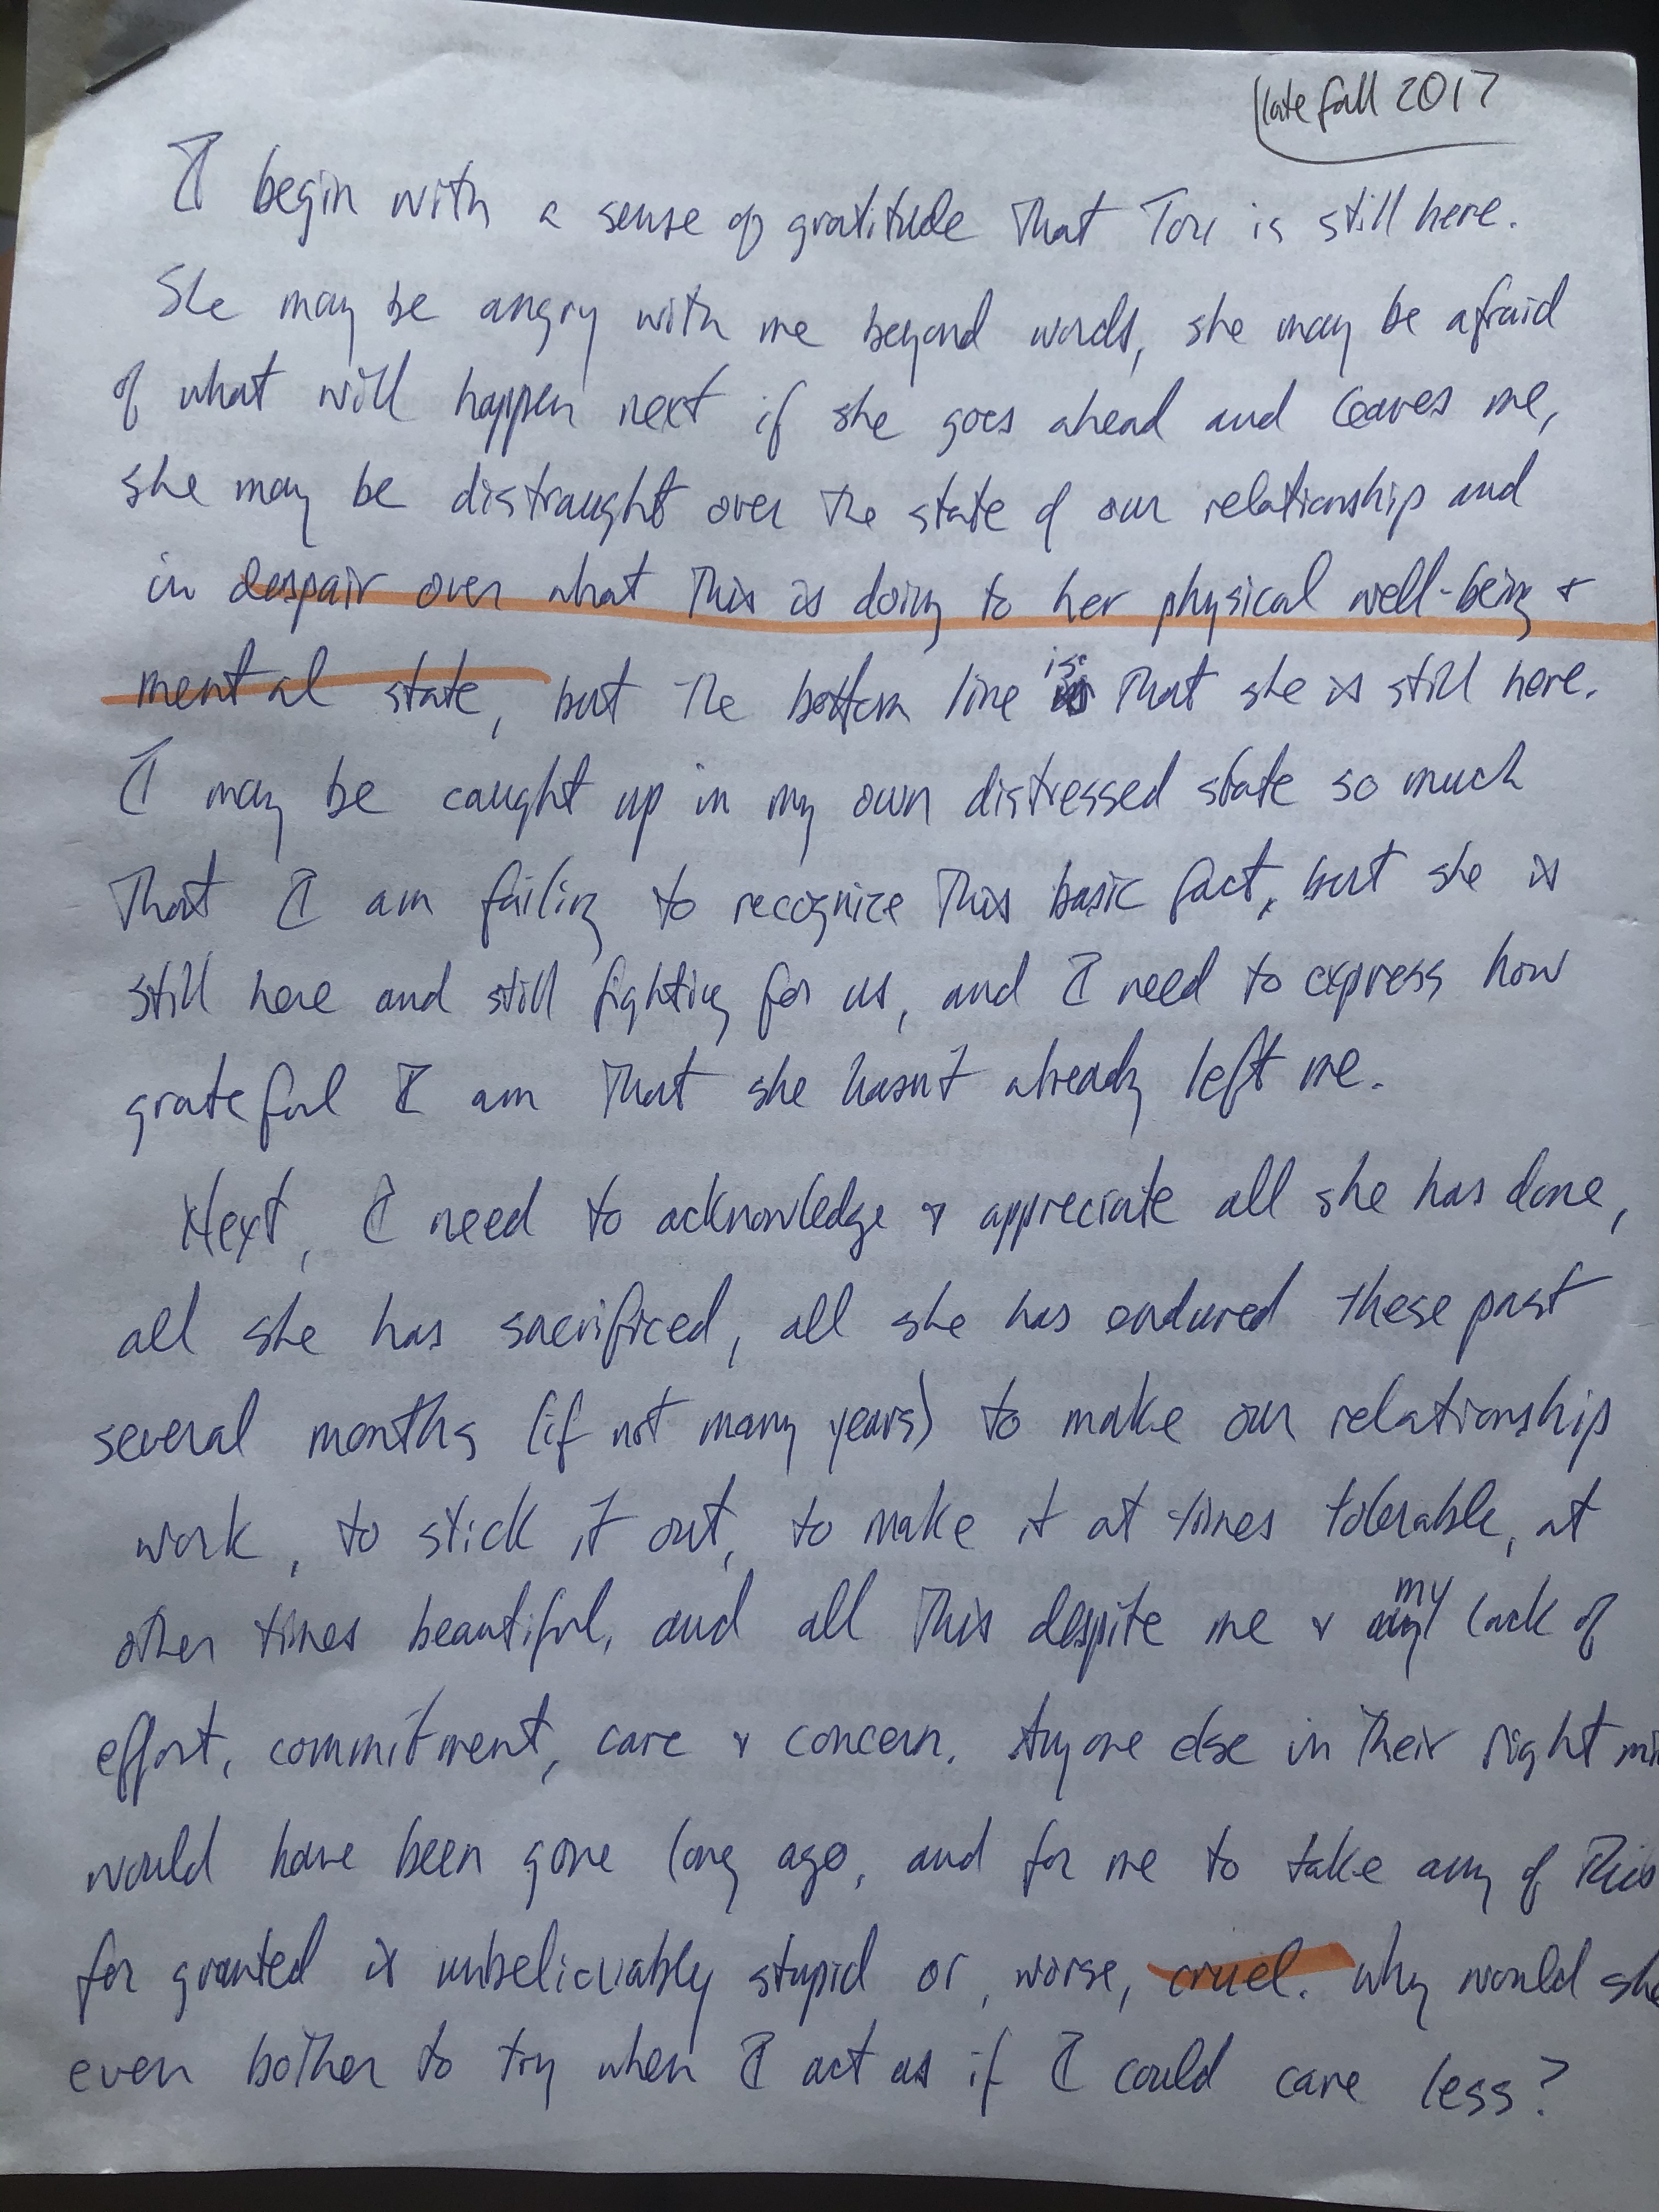 late fall 2017
I begin with a sense of gratitude that Tori is still here.
She may be angry with me beyond words, she may be afraid
of what will happen next if she goes ahead and leaves me,
she may be distraught over the state of our relationship and
in despair over what this is doing to her physical well-being &
mental state, but the bottom line is that she is still here.
I may be caught up in my own distressed state so much
that I am failing to recognize this basic fact, but she is
still here and still fighting for us, and I need to express how
grateful I am that she hasn't already left me.
Next, I need to acknowledge & appreciate all she has done,
all she has sacrificed, all she has endured these past
several months (if not many years) to make our relationship
work, to stick it out, to make it at times tolerable, at
other times beautiful, and all this despite me & my lack of
effort, commitment, care & concern. Anyone else in their right
would have been gone long ago, and for me to take any of this
for granted is unbelievably stupid or, worse, cruel. Why would she
even bother to try when I act as if I could care less?